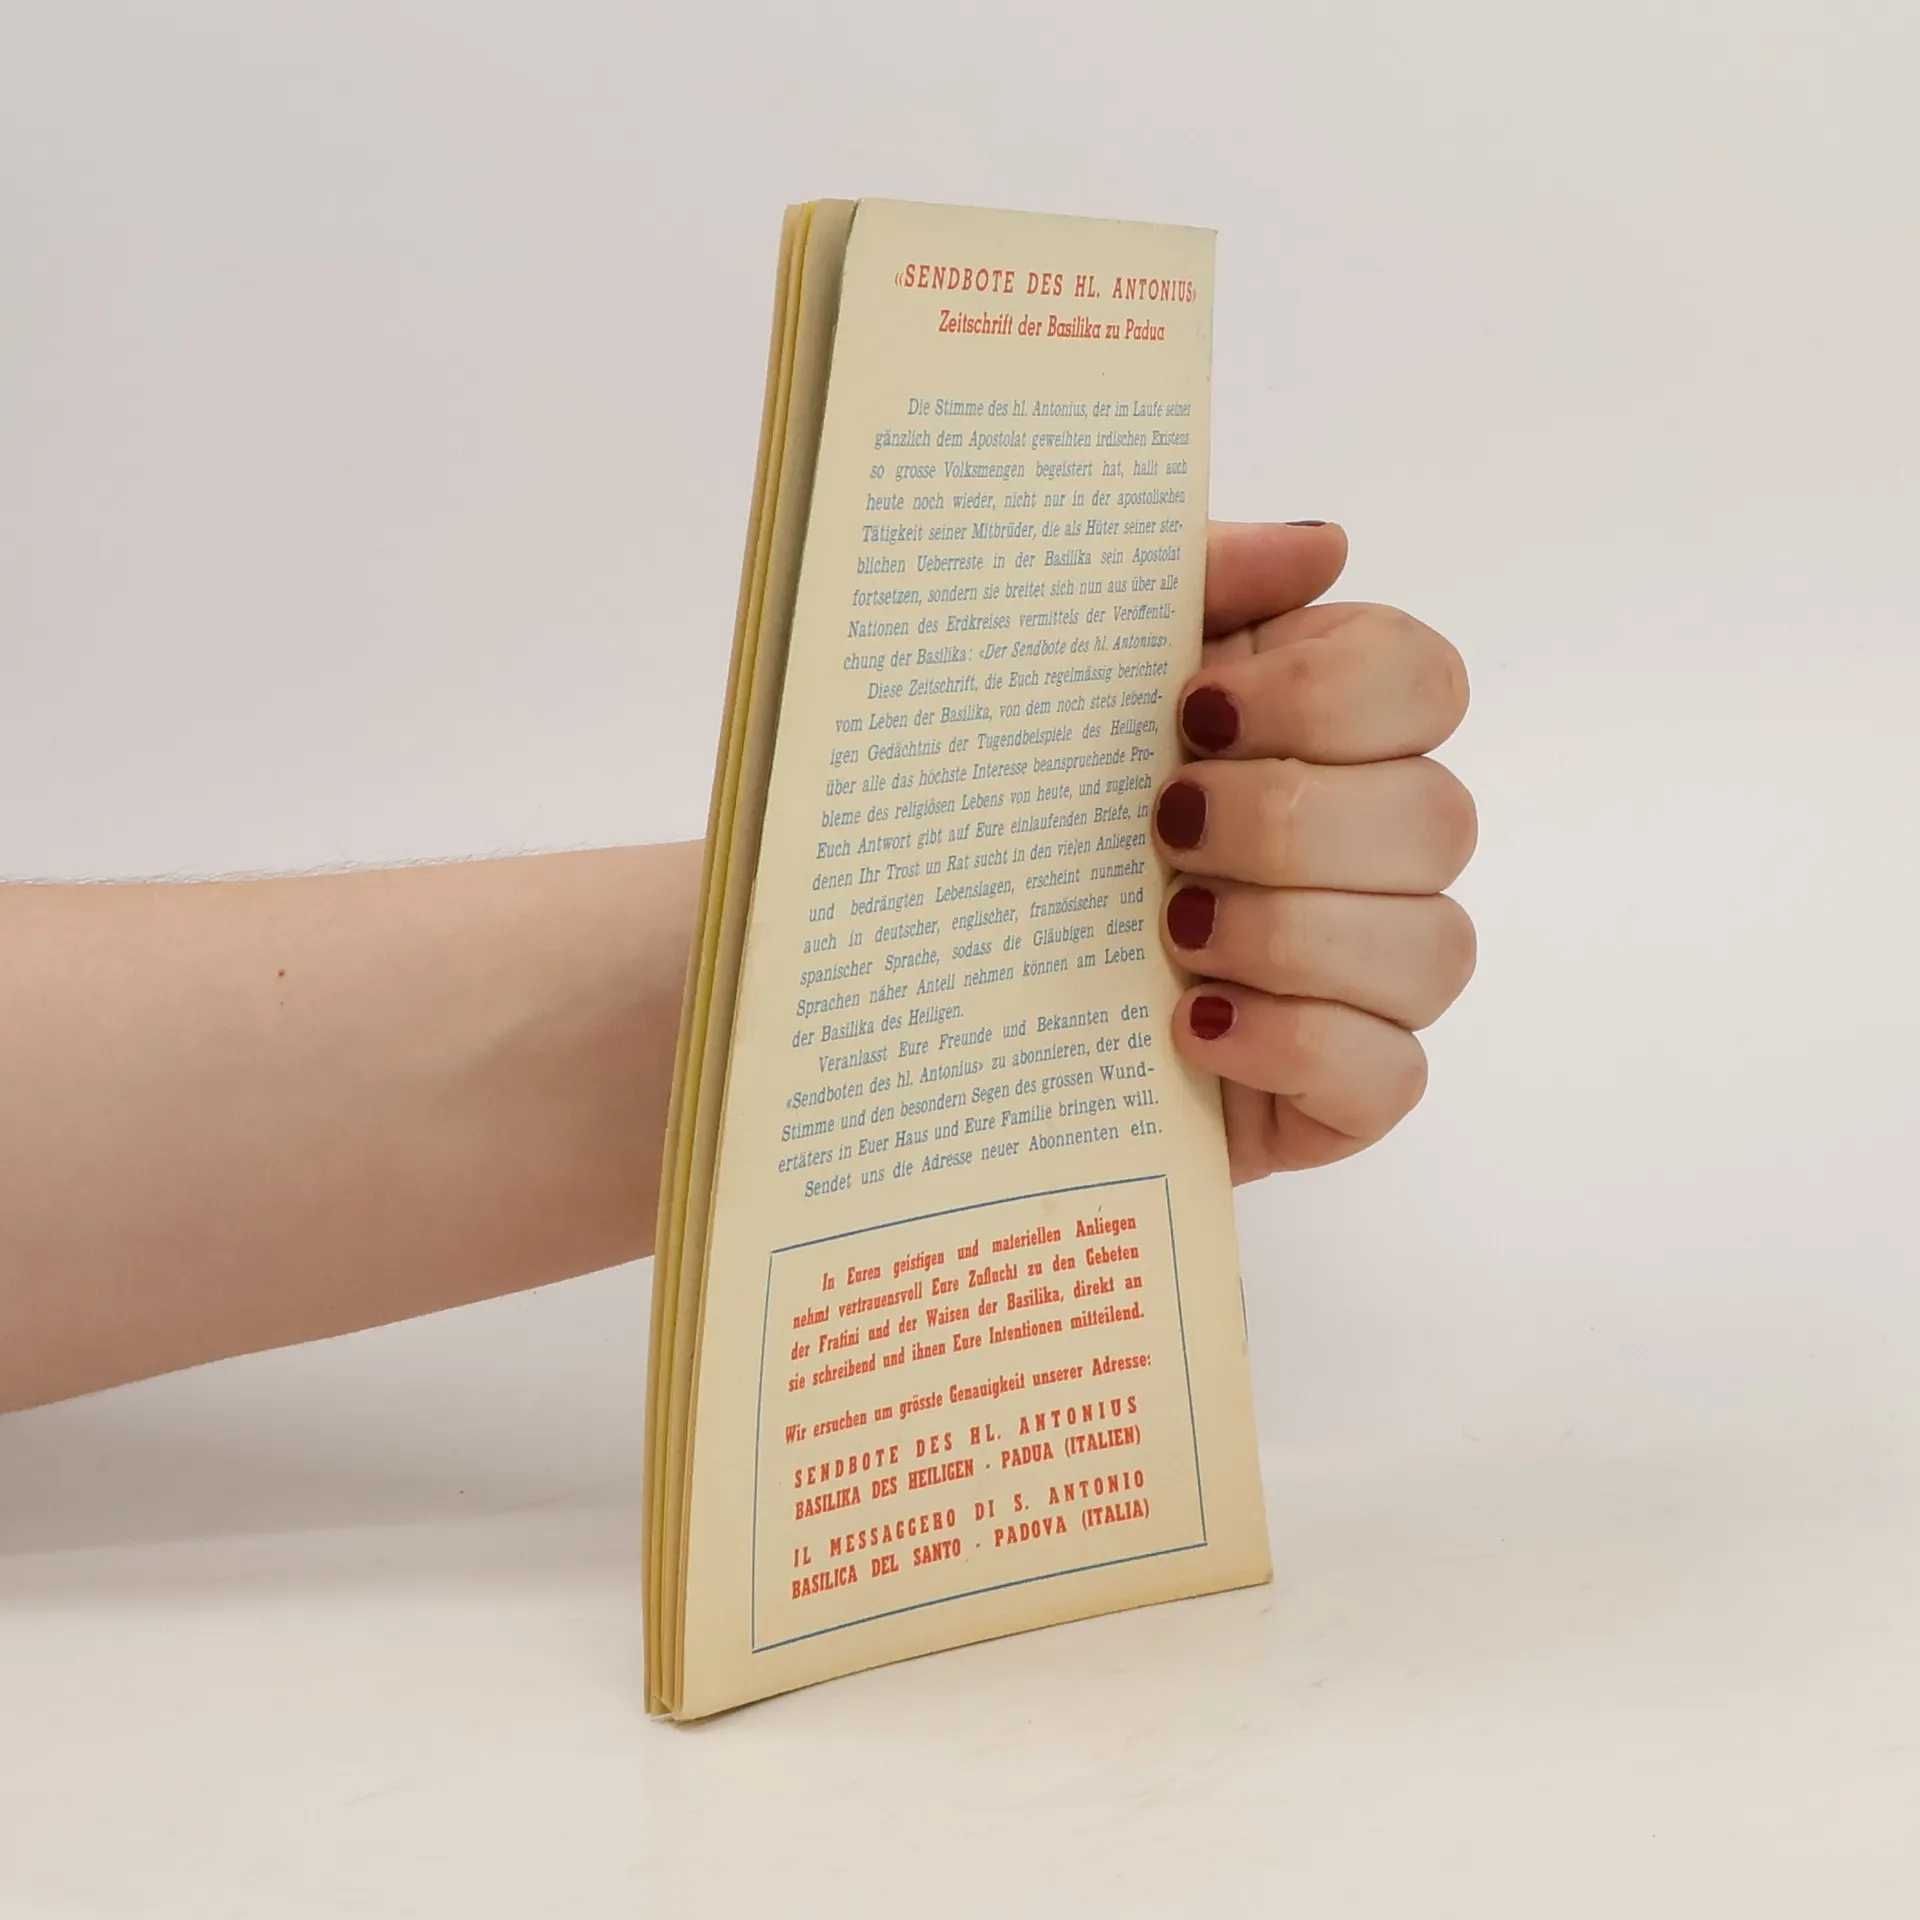 «SENDBOTE DES HL. ANTONIUS»
Zeitschrift der Basilika zu Padua
Die Stimme des hl. Antonius, der im Laufe seiner
gänzlich dem Apostolat geweihten irdischen Existenz
so grosse Volksmengen begeistert hat, hallt auch
heute noch wieder, nicht nur in der apostolischen
Tätigkeit seiner Mitbrüder, die als Hüter seiner ster-
blichen Ueberreste in der Basilika sein Apostolat
fortsetzen, sondern sie breitet sich nun aus über alle
Nationen des Erdkreises vermittels der Veröffentli-
chung der Basilika: «Der Sendbote des hl. Antonius».
Diese Zeitschrift, die Euch regelmässig berichtet
vom Leben der Basilika, von dem noch stets lebend-
igen Gedächtnis der Tugendbeispiele des Heiligen,
über alle das höchste Interesse beanspruchende Pro-
bleme des religiösen Lebens von heute, und zugleich
Euch Antwort gibt auf Eure einlaufenden Briefe, in
denen Ihr Trost un Rat sucht in den vielen Anliegen
und bedrängten Lebenslagen, erscheint nunmehr
auch in deutscher, englischer, französischer und
spanischer Sprache, sodass die Gläubigen dieser
Sprachen näher Anteil nehmen können am Leben
der Basilika des Heiligen.
Veranlasst Eure Freunde und Bekannten den
«Sendboten des hl. Antonius» zu abonnieren, der die
Stimme und den besondern Segen des grossen Wund-
ertäters in Euer Haus und Eure Familie bringen will.
Sendet uns die Adresse neuer Abonnenten ein.
In Euren geistigen und materiellen Anliegen
nehmt vertrauensvoll Eure Zuflucht zu den Gebeten
der Fratini und der Waisen der Basilika, direkt an
sie schreibend und ihnen Eure Intentionen mitteilend.
Wir ersuchen um grösste Genauigkeit unserer Adresse:
SENDBOTE DES HL. ANTONIUS
BASILIKA DES HEILIGEN - PADUA (ITALIEN)
IL MESSAGGERO DI S. ANTONIO
BASILICA DEL SANTO - PADOVA (ITALIA)